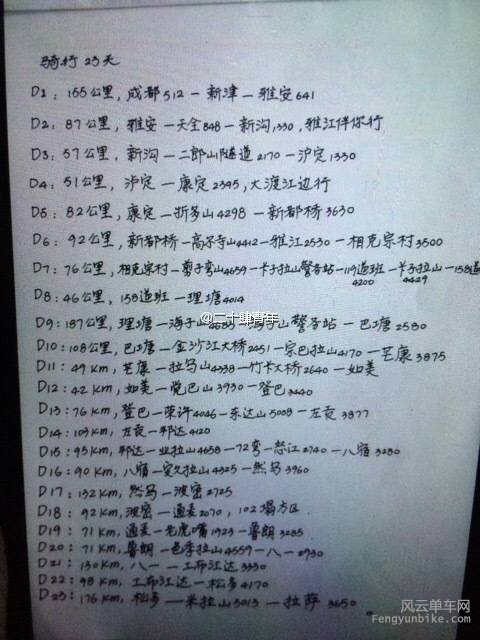 骑行 23天
D1: 155公里, 成都512 — 新津 — 雅安641
D2: 87公里, 雅安 — 天全848 — 新沟1330, 雅江伴你行
D3: 57公里, 新沟 — 二郎山隧道2170 — 泸定1330
D4: 51公里, 泸定 — 康定2345, 大渡江边行
D5: 82公里, 康定 — 折多山4298 — 新都桥3630
D6: 92公里, 新都桥 — 高尔寺山4412 — 雅江2530 — 相克宗村3500
D7: 76公里, 相克宗村 — 剪子弯山4659 — 卡子拉山警务站 — 119道班4200 — 卡子拉山4429 — 158道班
D8: 46公里, 158道班 — 理塘4014
@二十肆青年
D9: 187公里, 理塘 — 海子山4685 — 警务站 — 巴塘2580
D10: 108公里, 巴塘 — 金沙江大桥2451 — 宗巴拉山4170 — 芒康3875
D11: 49km, 芒康 — 拉乌山4338 — 竹卡大桥2640 — 如美
D12: 42km, 如美 — 觉巴山3930 — 登巴3440
D13: 76km, 登巴 — 荣许4046 — 东达山5008 — 左贡3877
D14: 109km, 左贡 — 邦达4120
D15: 95km, 邦达 — 业拉山4658 — 72弯 — 怒江2740 — 八宿3280
D16: 90km, 八宿 — 安久拉山4325 — 然乌3960
D17: 132km, 然乌 — 波密2725
D18: 92km, 波密 — 通麦2070, 102塌方区
D19: 71km, 通麦 — 老虎嘴1923 — 鲁朗3285
D20: 71km, 鲁朗 — 色季拉山4559 — 八一2930
D21: 130km, 八一 — 工布江达3330
D22: 98km, 工布江达 — 松多4170
D23: 176km, 松多 — 米拉山5013 — 拉萨3650。
风云单车网
Fengyunbike.com